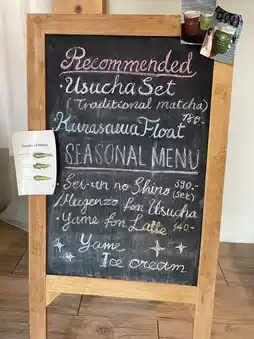 Recommended
• Usucha Set
(Traditional matcha)
780.-
• Kurasawa Float
SEASONAL MENU
• Sei-un no Shiro 390.-
(set)
• Mugenzo for Usucha
• Yame for Latte 140.-
Yame
Ice cream